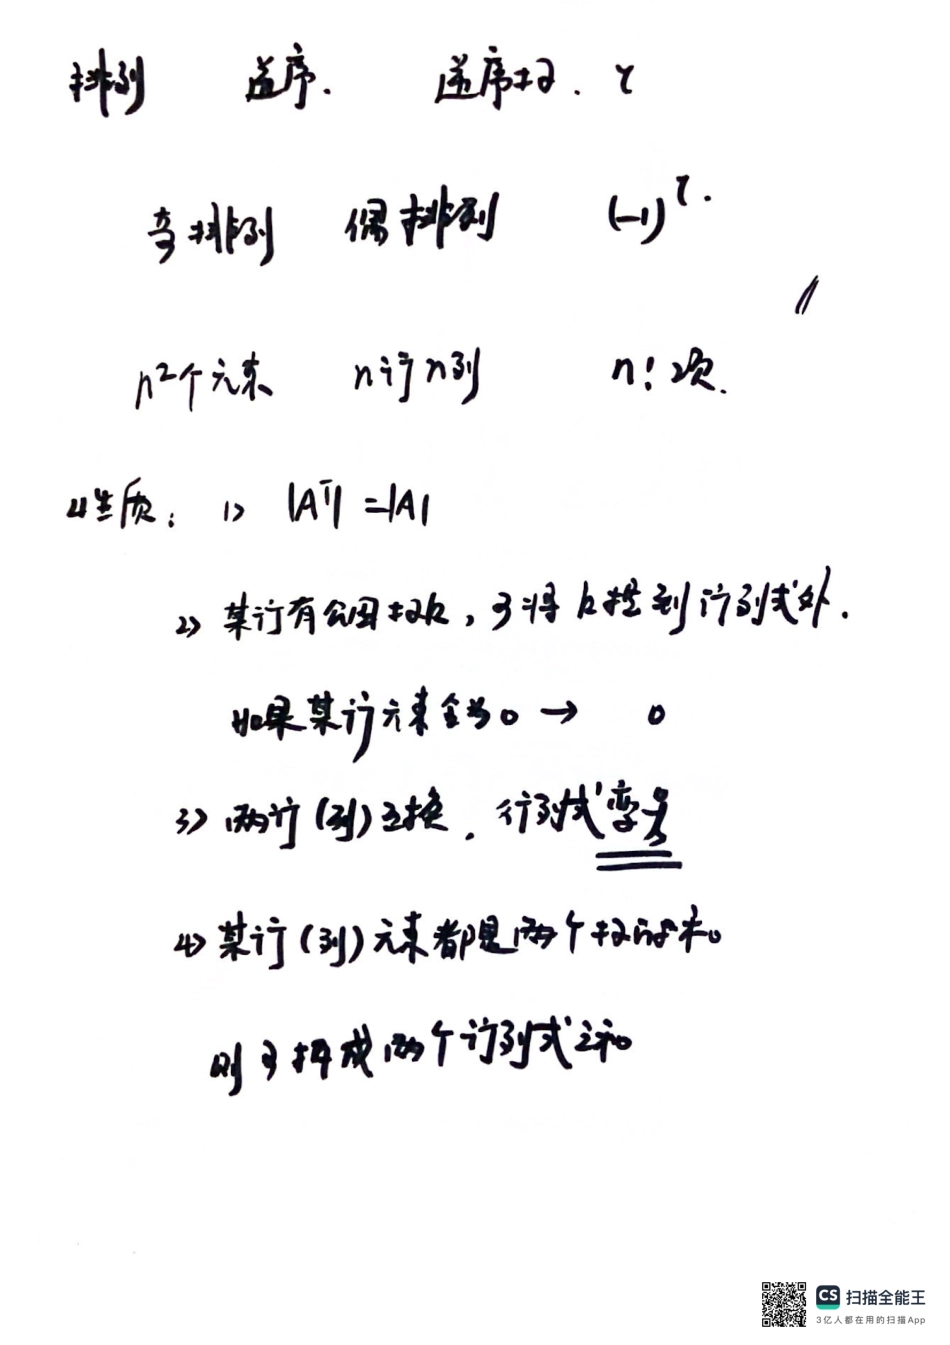 排列 逆序. 逆序数. τ
奇排列 偶排列 (-1)^τ.
n²个元素 n行n列 n! 项.
性质: 1> |Aᵀ| = |A|
2> 某行有公因数k, 可将k提到行列式外.
如果某行元素全为0 → 0
3> 两行(列)互换. 行列式变号
4> 某行(列)元素都是两个数的和。
则可拆成两个行列式之和
CS 扫描全能王
3亿人都在用的扫描App